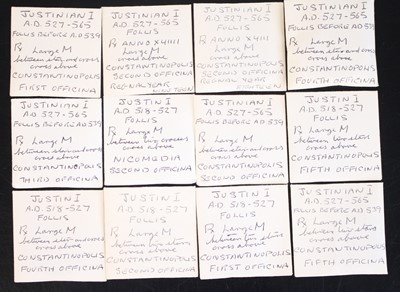 JUSTINIAN I
A.D. 527-565
FOLLIS BEFORE AD 539
Large M
between star and cross
cross above
CONSTANTINOPOLIS
FIRST OFFICINA
JUSTINIAN I
A.D. 527-565
FOLLIS
ANNO XUIII
Large M
cross above
CONSTANTINOPOLIS
SECOND OFFICINA
REGNAL YEAR
JUSTINIAN I
A.D. 527-565
FOLLIS
ANNO XUIII
Large M
cross above
CONSTANTINOPOLIS
SECOND OFFICINA
REGNAL YEAR
EIGHTEEN
JUSTINIAN I
A.D. 527-565
FOLLIS BEFORE AD 539
Large M
between star and cross
cross above
CONSTANTINOPOLIS
FOURTH OFFICINA
JUSTINIAN I
A.D. 527-565
FOLLIS BEFORE AD 539
Large M
between star and cross
cross above
CONSTANTINOPOLIS
THIRD OFFICINA
JUSTIN I
A.D. 518-527
FOLLIS
Large M
between two crosses
cross above
NICOMEDIA
SECOND OFFICINA
JUSTINIAN I
A.D. 527-565
FOLLIS BEFORE AD 539
Large M
between star and cross
cross above
CONSTANTINOPOLIS
SECOND OFFICINA
JUSTIN I
A.D. 518-527
FOLLIS
Large M
between two stars
cross above
CONSTANTINOPOLIS
FIFTH OFFICINA
JUSTIN I
A.D. 518-527
FOLLIS
Large M
between star and cross
cross above
CONSTANTINOPOLIS
FOURTH OFFICINA
JUSTIN I
A.D. 518-527
FOLLIS
Large M
between two stars
cross above
CONSTANTINOPOLIS
SECOND OFFICINA
JUSTIN I
A.D. 518-527
FOLLIS
Large M
between two stars
cross above
CONSTANTINOPOLIS
FIRST OFFICINA
JUSTINIAN I
A.D. 527-565
FOLLIS BEFORE AD 539
Large M
between two stars
cross above
CONSTANTINOPOLIS
FIFTH OFFICINA